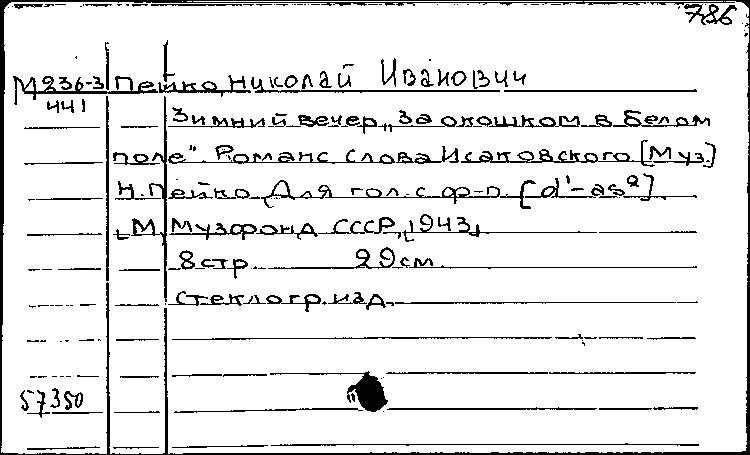 786
М236-3 Пейко, Николай Иванович
441
Зимний вечер „За окошком в белом
поле". Романс слова Исаковского [Муз.]
Н. Пейко Для гол. с ф-п. [d'-as²].
[М] Музфонд СССР, [1943]
8 стр 29 см.
стеклогр. изд.
57350